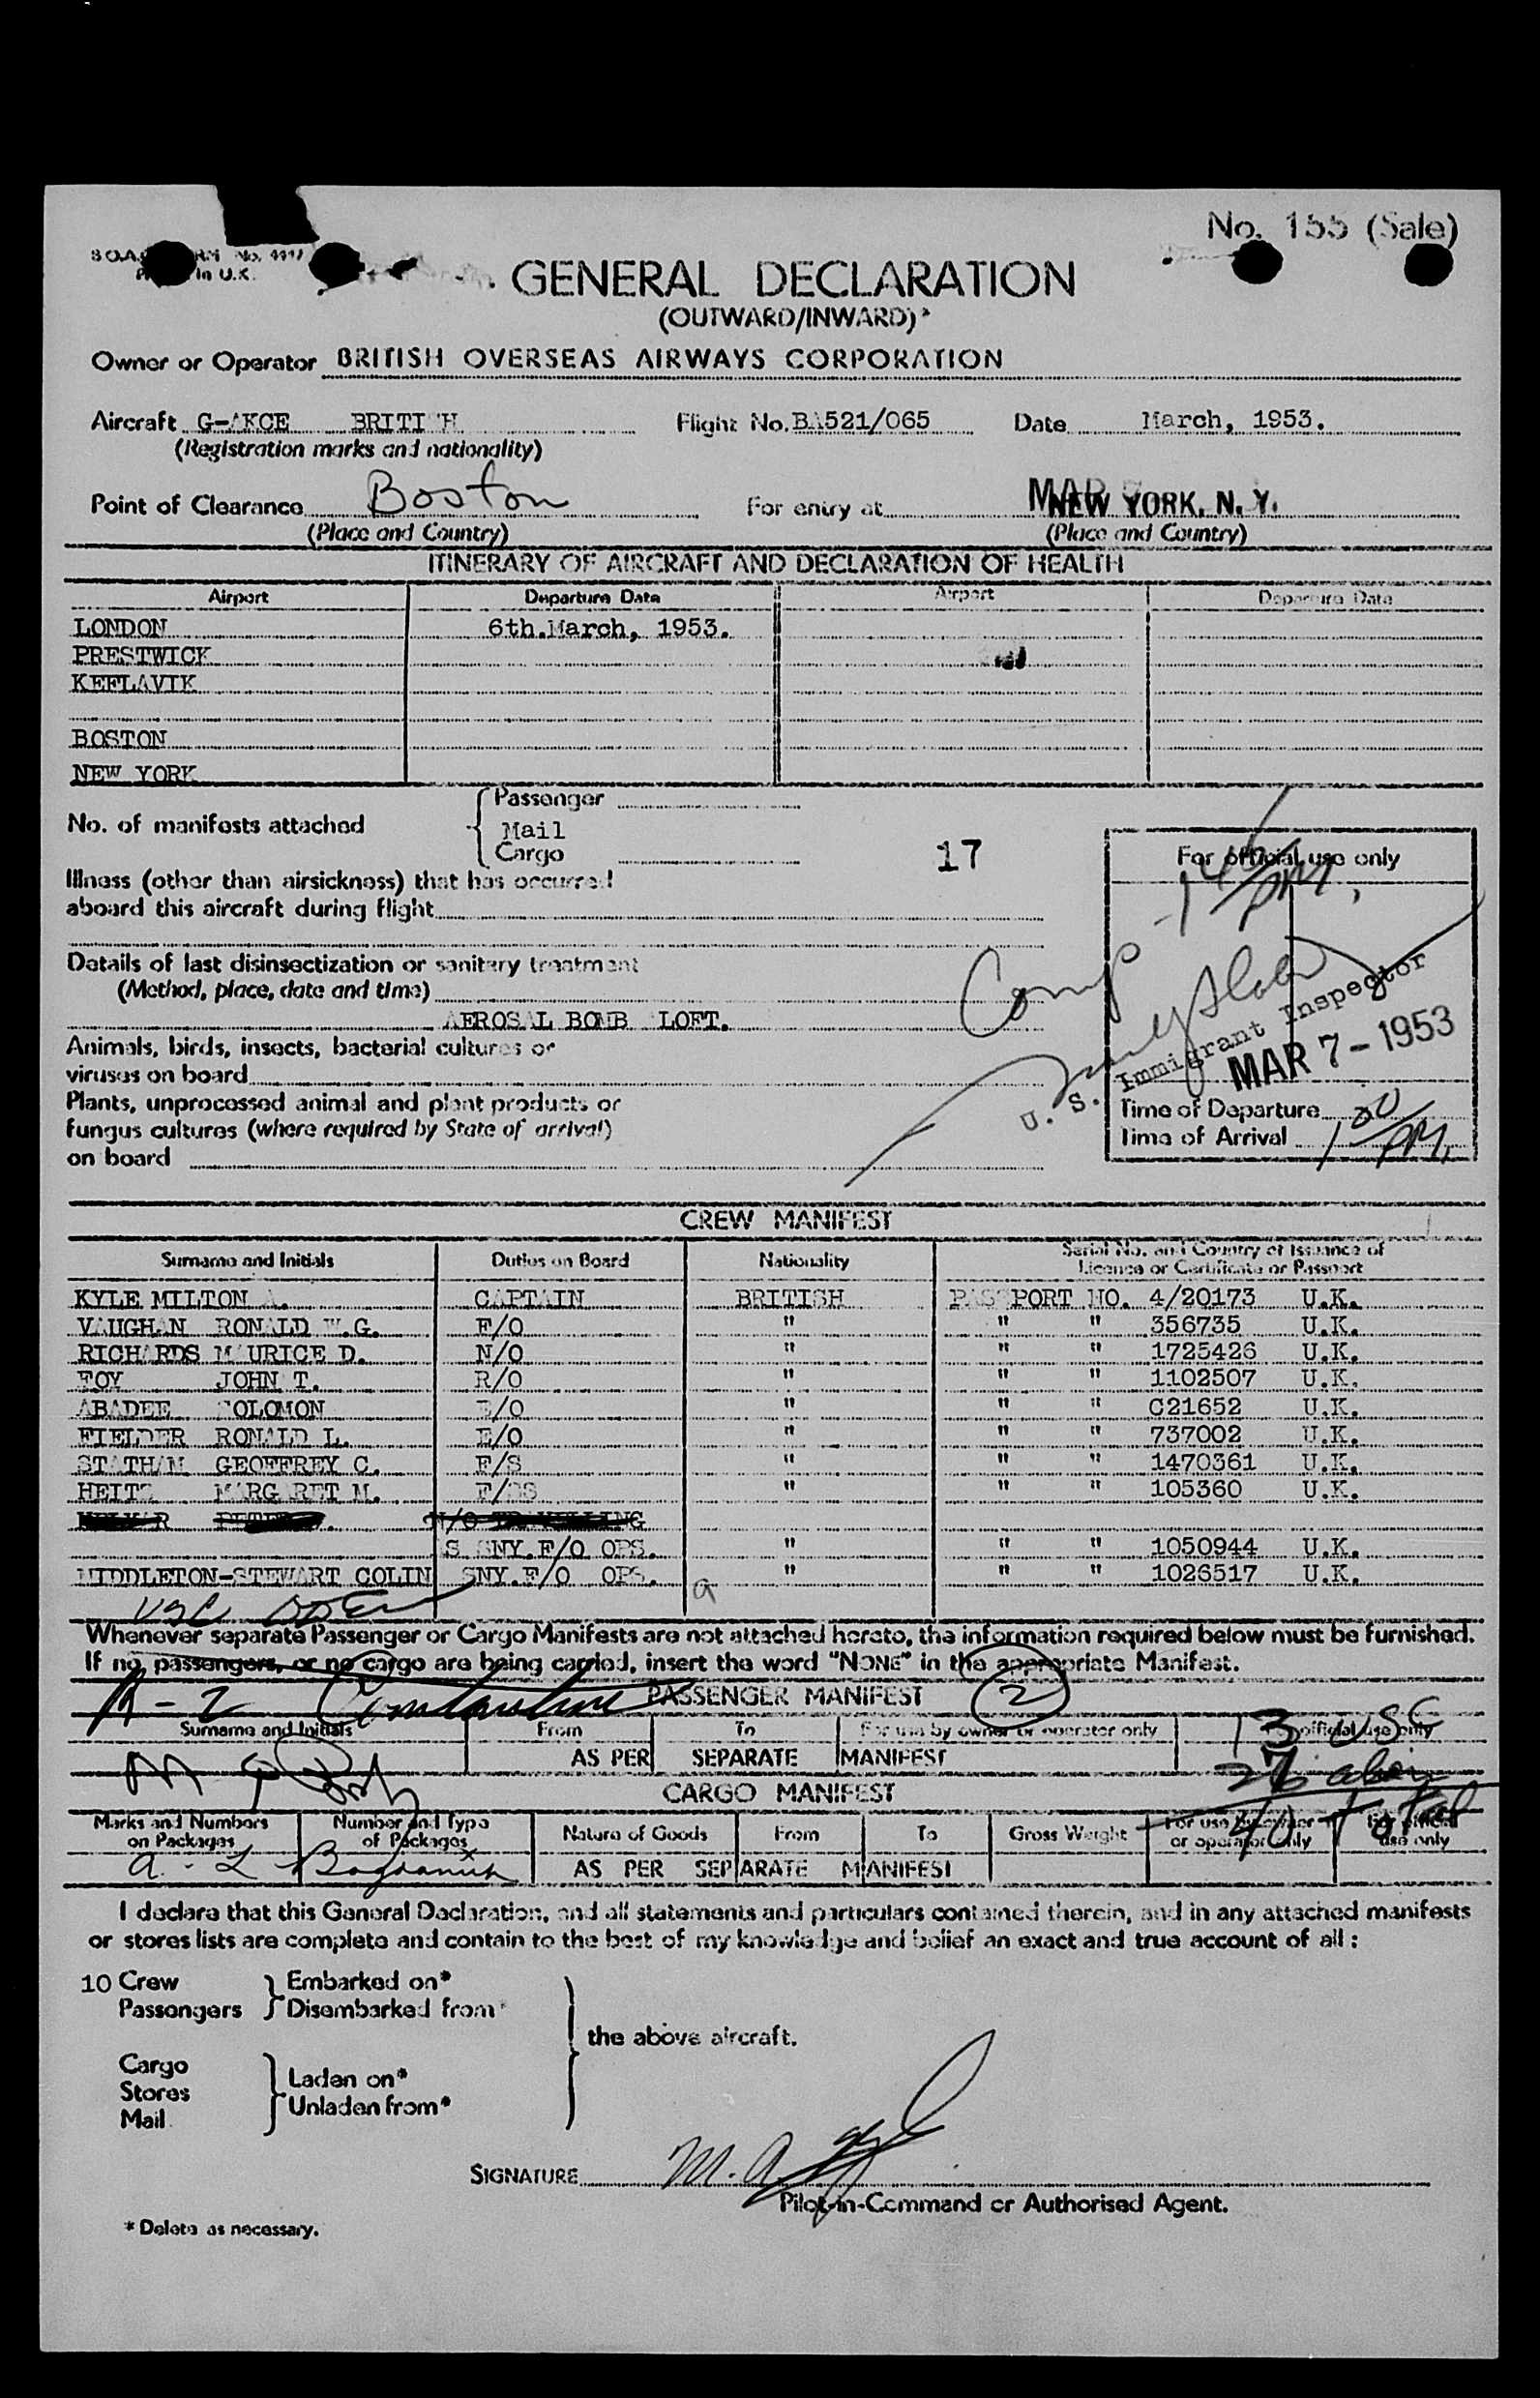 No. 155 (Sale)
GENERAL DECLARATION
(OUTWARD/INWARD)*
Owner or Operator BRITISH OVERSEAS AIRWAYS CORPORATION
Aircraft G-AKCE BRITISH Flight No. BA521/065 Date March, 1953.
(Registration marks and nationality)
Point of Clearance Boston For entry at MAR NEW YORK, N. Y.
(Place and Country) (Place and Country)
ITINERARY OF AIRCRAFT AND DECLARATION OF HEALTH
Airport Departure Date Airport Departure Date
LONDON 6th.March, 1953.
PRESTWICK
KEFLAVIK
BOSTON
NEW YORK
No. of manifests attached
Passenger
Mail
Cargo
17
For official use only
Illness (other than airsickness) that has occurred
aboard this aircraft during flight
Details of last disinsectization or sanitary treatment
(Method, place, date and time)
AEROSAL BOMB ALOFT.
Animals, birds, insects, bacterial cultures or
viruses on board
Plants, unprocessed animal and plant products or
fungus cultures (where required by State of arrival)
on board
Comp
U. S. Immigrant Inspector
MAR 7 - 1953
Time of Departure
Time of Arrival 1 00 PM
CREW MANIFEST
Surname and Initials Duties on Board Nationality Serial No. and Country of Issuance of
Licence or Certificate or Passport
KYLE MILTON A. CAPTAIN BRITISH PASSPORT NO. 4/20173 U.K.
VAUGHAN RONALD W.G. F/O " " " 356735 U.K.
RICHARDS MAURICE D. N/O " " " 1725426 U.K.
FOY JOHN T. R/O " " " 1102507 U.K.
ABADEE SOLOMON E/O " " " C21652 U.K.
FIELDER RONALD L. E/O " " " 737002 U.K.
STATHAM GEOFFREY C. F/S " " " 1470361 U.K.
HEITZ MARGARET M. F/SS " " " 105360 U.K.
AS SNY.F/O OPS. " " " 1050944 U.K.
MIDDLETON-STEWART COLIN SNY.F/O OPS. " " " 1026517 U.K.
Whenever separate Passenger or Cargo Manifests are not attached hereto, the information required below must be furnished.
If no passengers, or no cargo are being carried, insert the word "NONE" in the appropriate Manifest.
A-2
PASSENGER MANIFEST
2
Surname and Initials From To For use by owner or operator only For official use only
13 USC
AS PER SEPARATE MANIFEST
27 alien
CARGO MANIFEST
40 Total
Marks and Numbers on Packages Number and Type of Packages Nature of Goods From To Gross Weight For use by owner or operator only For official use only
AS PER SEPARATE MANIFEST
I declare that this General Declaration, and all statements and particulars contained therein, and in any attached manifests
or stores lists are complete and contain to the best of my knowledge and belief an exact and true account of all :
10 Crew Embarked on*
Passengers Disembarked from*
the above aircraft.
Cargo
Stores
Mail
Laden on*
Unladen from*
SIGNATURE M. A. Kyle
Pilot-in-Command or Authorised Agent.
* Delete as necessary.